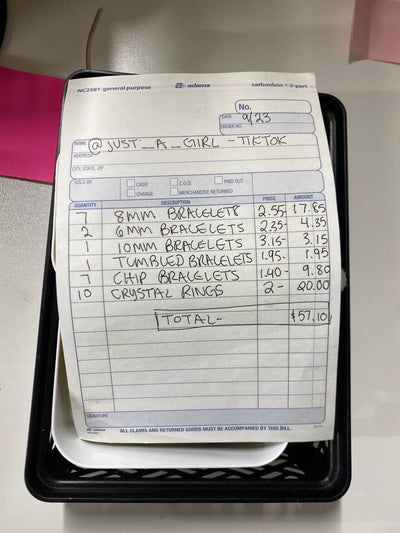 NC2581 general purpose adams carbonless • 2 part
No.
DATE 9/23
ORDER NO.
NAME @JUST_A_GIRL - TIKTOK
ADDRESS
CITY, STATE, ZIP
SOLD BY CASH C.O.D. PAID OUT
CHARGE MERCHANDISE RETURNED
QUANTITY DESCRIPTION PRICE AMOUNT
7 8MM BRACELETS 2.55- 17.85
2 6MM BRACELETS 2.35- 4.35
1 10MM BRACELETS 3.15- 3.15
1 TUMBLED BRACELETS 1.95- 1.95
7 CHIP BRACELETS 1.40- 9.80
10 CRYSTAL RINGS 2- 20.00
TOTAL- $57.10
SIGNATURE
adams ALL CLAIMS AND RETURNED GOODS MUST BE ACCOMPANIED BY THIS BILL.